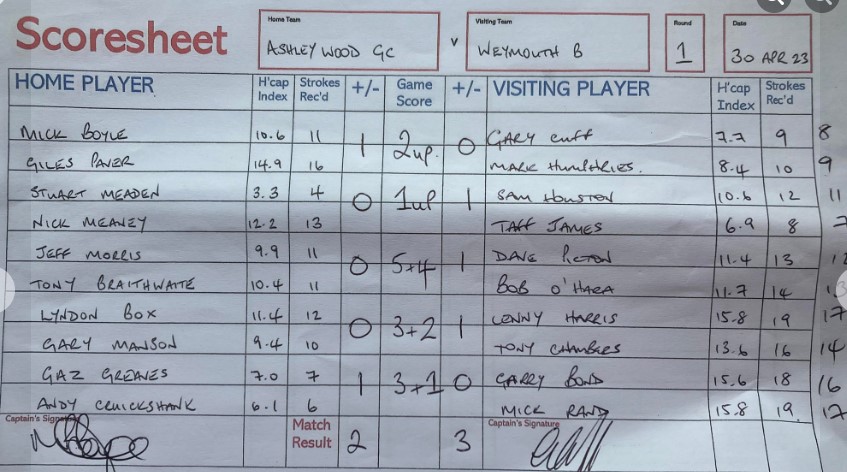 Scoresheet
Home Team
ASHLEY WOOD GC
v
Visiting Team
WEYMOUTH B
Round
1
Date
30 APR 23
HOME PLAYER H'cap Index Strokes Rec'd +/- Game Score +/- VISITING PLAYER H'cap Index Strokes Rec'd
MICK BOYLE 10.6 11 1 2up. 0 GARY CUFF 7.7 9 8
GILES PAVER 14.9 16 MARK HUMPHRIES. 8.4 10 9
STUART MEADEN 3.3 4 0 1up 1 SAM HOUSTON 10.6 12 11
NICK MEANEY 12.2 13 TAFF JAMES 6.9 8 7
JEFF MORRIS 9.9 11 0 5+4 1 DAVE 11.4 13 12
TONY BRAITHWAITE 10.4 11 BOB O'HARA 11.7 14 13
LYNDON BOX 11.4 12 0 3+2 1 LENNY HARRIS 15.8 19 17
GARY MANSON 9.4 10 TONY CHAMBERS 13.6 16 14
GAZ GREAVES 7.0 7 1 3+1 0 GARRY BOND 15.6 18 16
ANDY CRUICKSHANK 6.1 6 MICK RAND 15.8 19 17
Captain's Signature Match Result 2 3 Captain's Signature